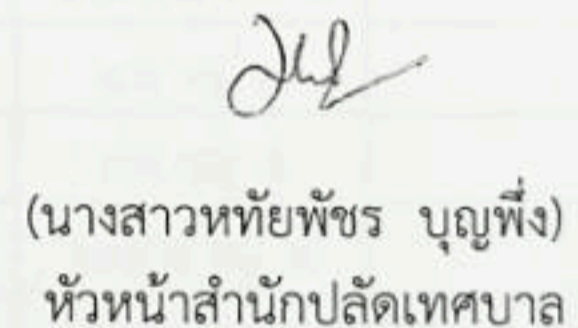 (นางสาวหทัยพัชร บุญพึ่ง)
หัวหน้าสำนักปลัดเทศบาล